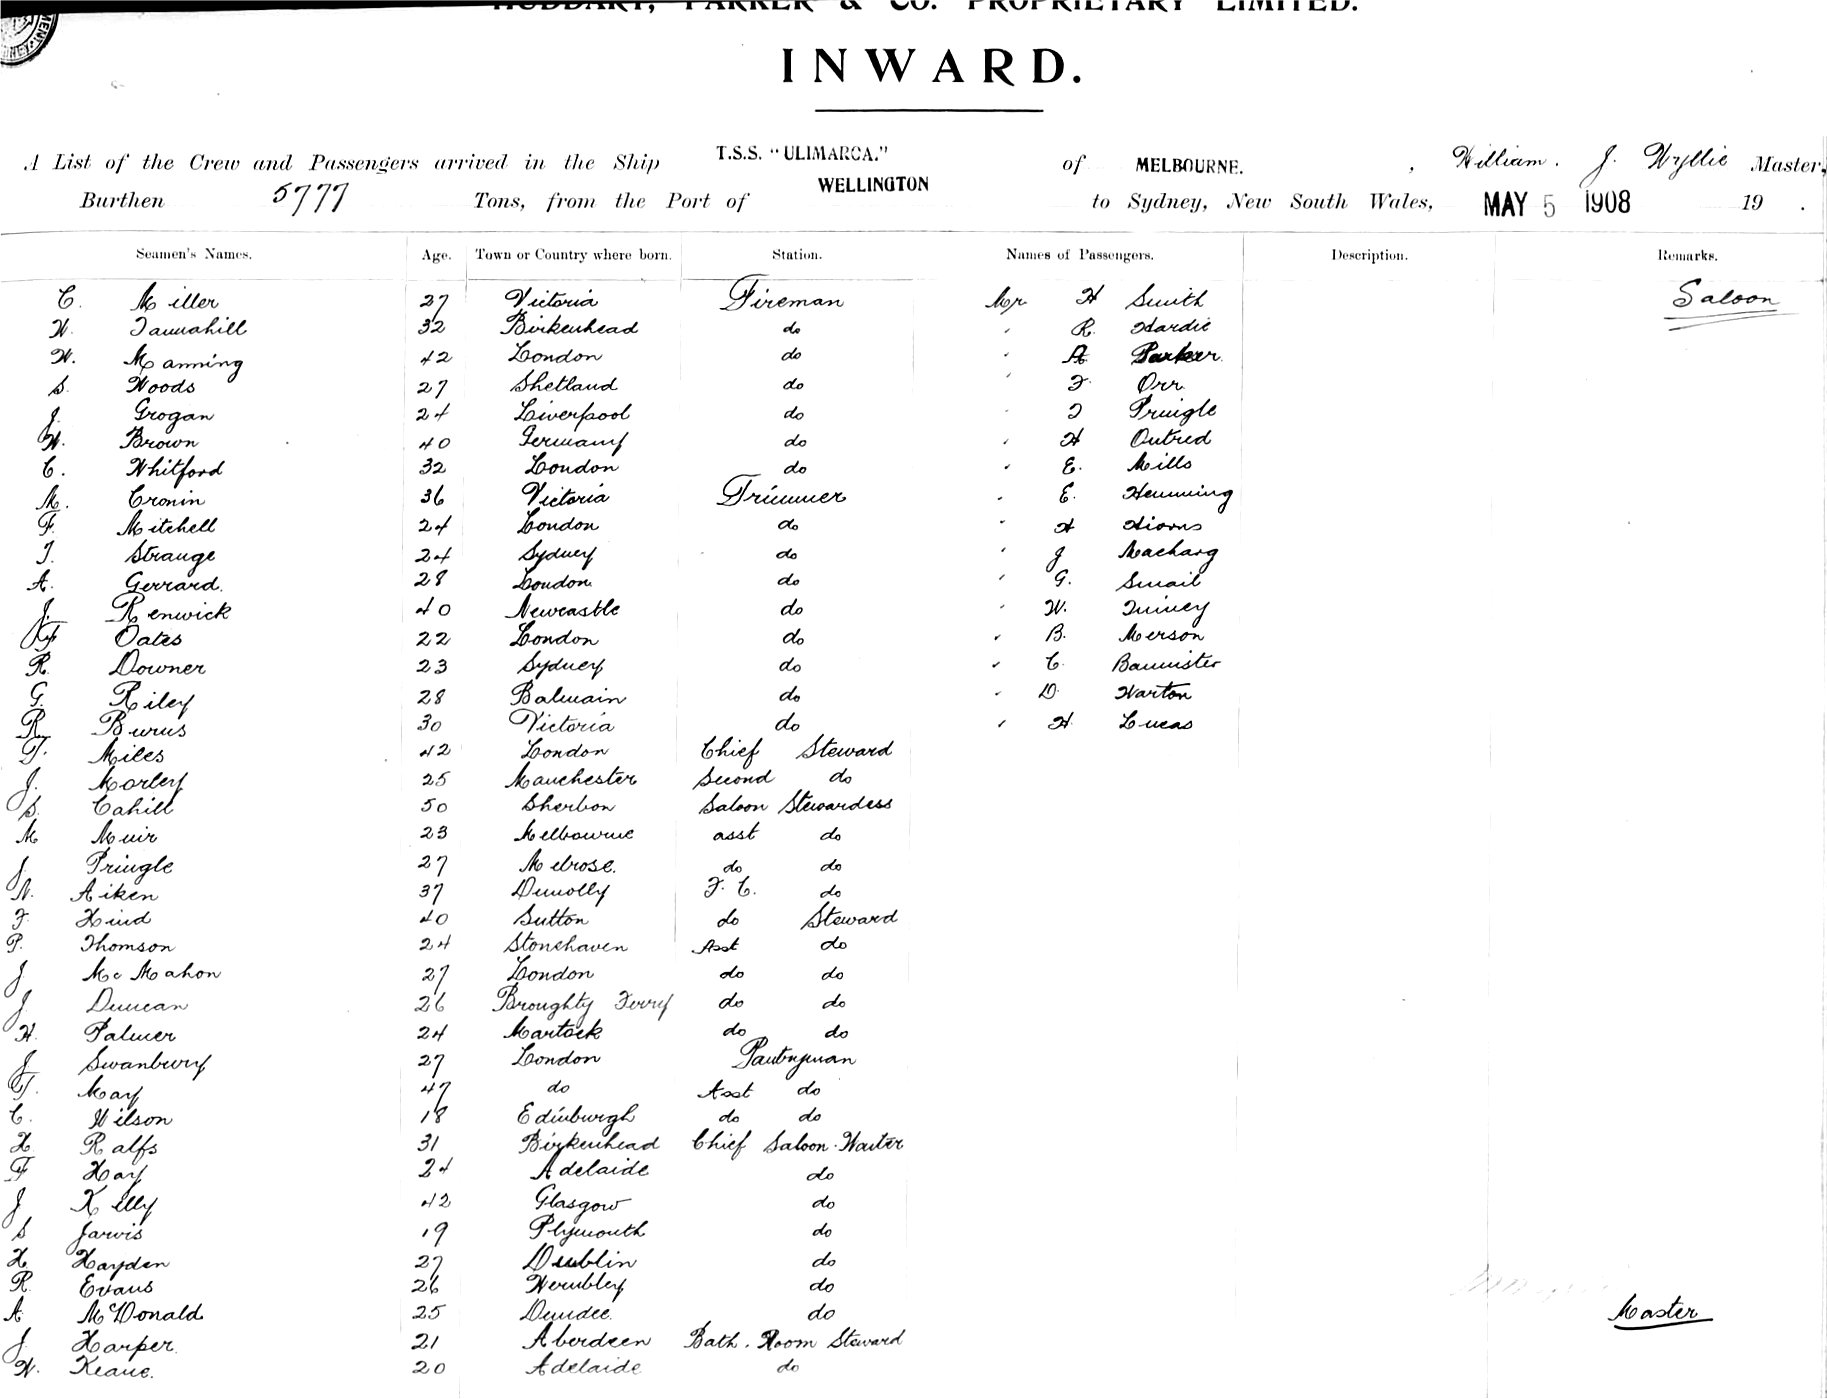 HUDDART, PARKER & CO. PROPRIETARY LIMITED.
INWARD.
A List of the Crew and Passengers arrived in the Ship T.S.S. "ULIMAROA." of MELBOURNE. , William. J. Wyllie Master,
Burthen 5777 Tons, from the Port of WELLINGTON to Sydney, New South Wales, MAY 5 1908 19 .
Seamen's Names. Age. Town or Country where born. Station. Names of Passengers. Description. Remarks.
C. Miller 27 Victoria Fireman Mr H Smith Saloon
W. Tannahill 32 Birkenhead do " R. Hardie
W. Manning 42 London do " A Parker
S. Woods 27 Shetland do " F. Orr
J. Grogan 24 Liverpool do " J Pringle
W. Brown 40 Germany do " H Outred
C. Whitford 32 London do " E. Mills
M. Cronin 36 Victoria Trimmer " E. Hemming
F. Mitchell 24 London do " H Hiorns
T. Strange 24 Sydney do " J Macharg
A. Gerrard. 28 London. do " G. Smail
J. Renwick 40 Newcastle do " W. Quincy
F Oates 22 London do " B. Merson
R. Downer 23 Sydney do " C. Bannister
G. Riley 28 Balmain do " D. Harton
R. Burns 30 Victoria do " H Lucas
T. Miles 42 London Chief Steward
J. Morley 25 Manchester Second do
S. Cahill 50 Sherbon Saloon Stewardess
M Muir 23 Melbourne asst do
J. Pringle 27 Melrose. do do
N. Aiken 37 Dunolly F. C. do
F. Hind 40 Sutton do Steward
P. Thomson 24 Stonehaven Asst do
J McMahon 27 London do do
J Duncan 26 Broughty Ferry do do
H. Palmer 24 Martock do do
J. Swanbury 27 London Pantryman
T. May 47 do Asst do
C. Wilson 18 Edinburgh do do
H Ralfs 31 Birkenhead Chief Saloon. Waiter
F Hay 24 Adelaide do
J Kelly 42 Glasgow do
S Jarvis 19 Plymouth do
H Hayden 27 Dublin do
R. Evans 26 Wembley do
A McDonald 25 Dundee. do Master
J. Harper. 21 Aberdeen Bath. Room Steward
W. Keane. 20 Adelaide do